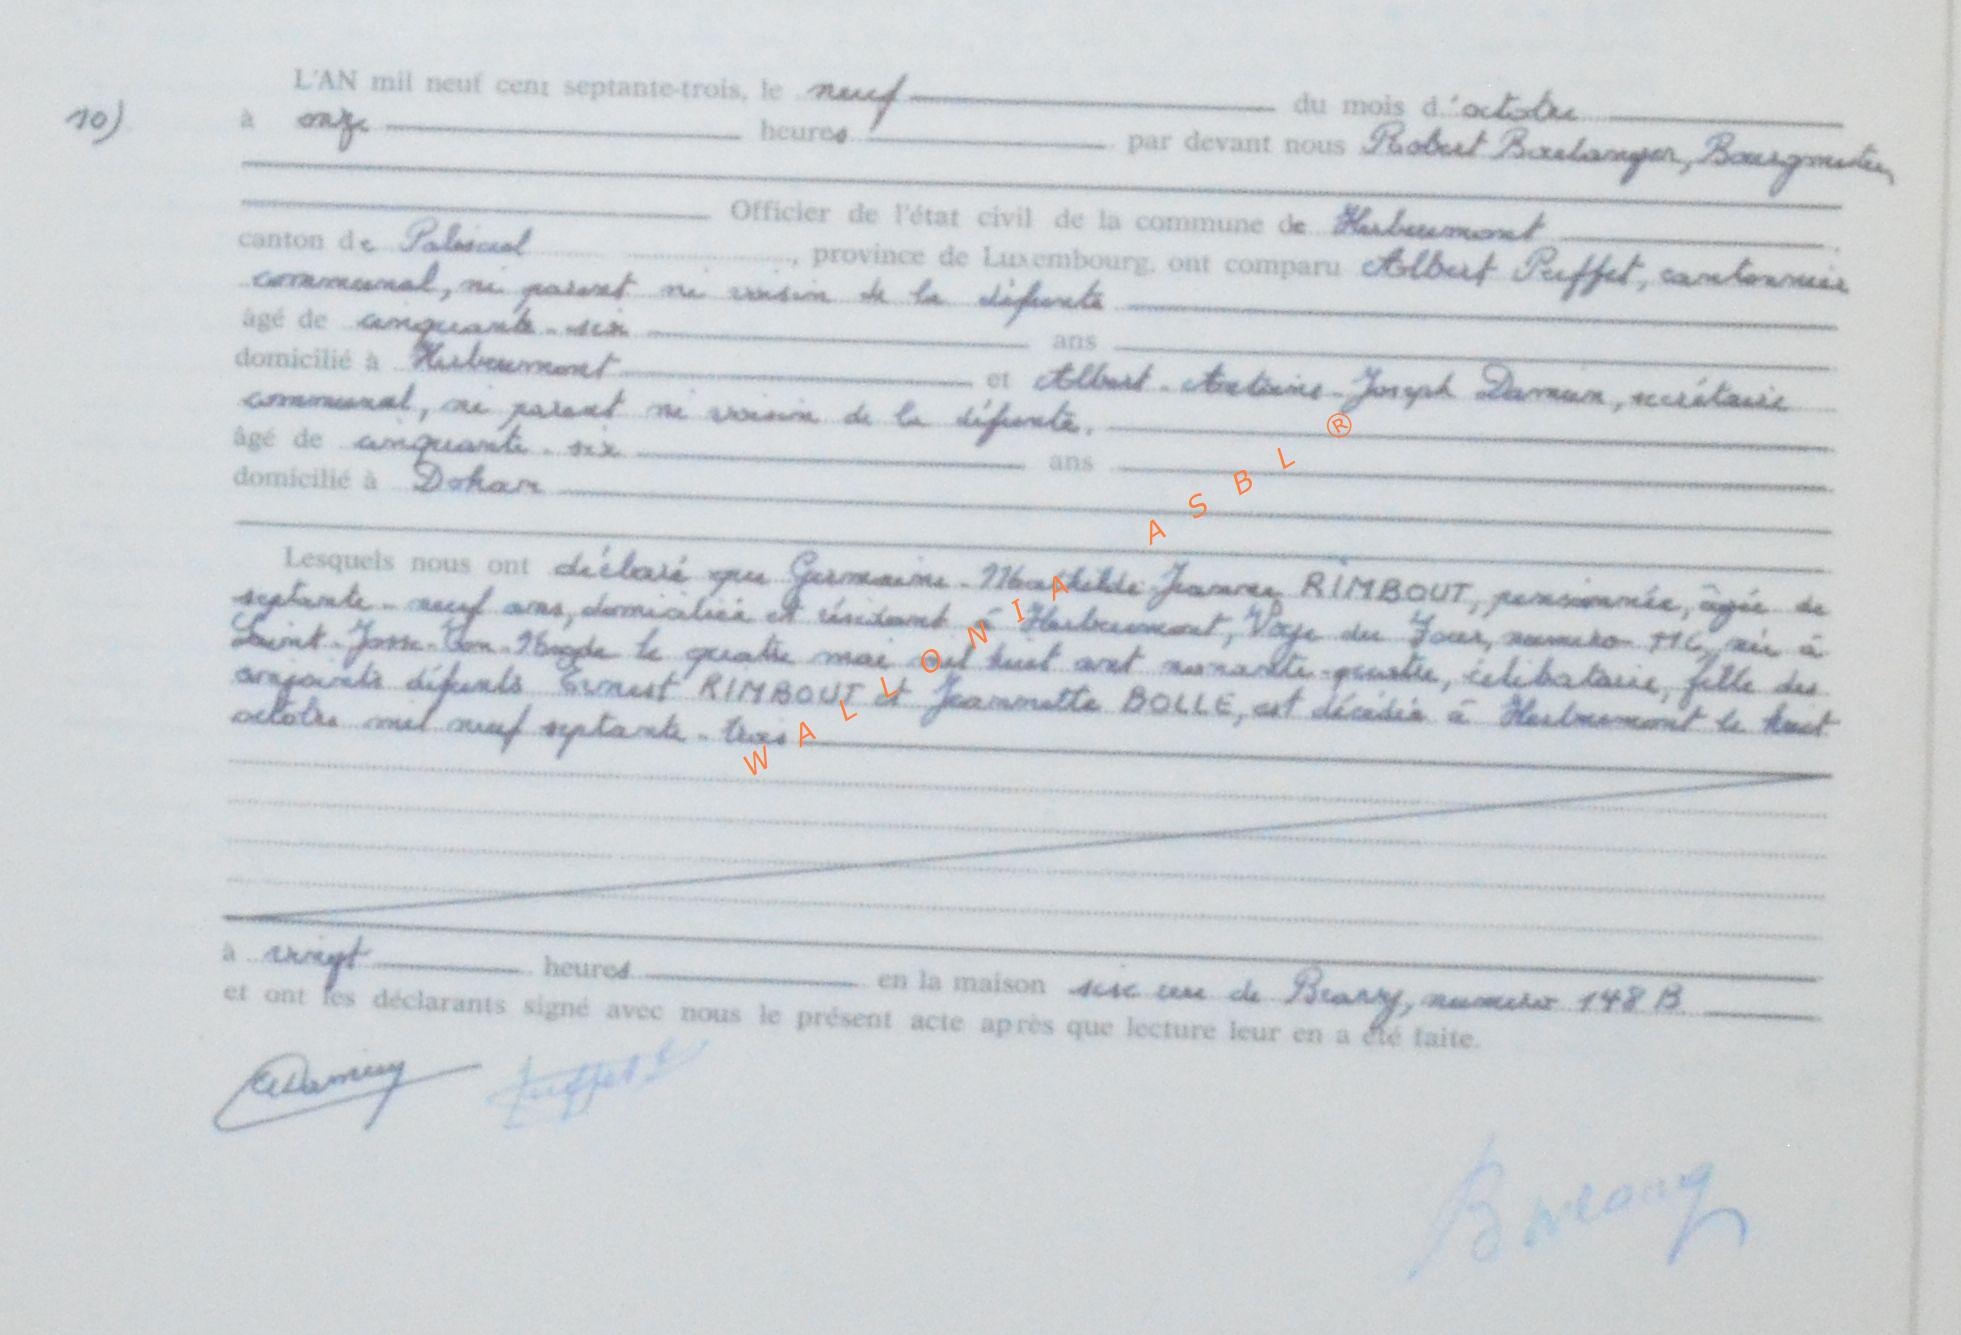 10)
L'AN mil neuf cent septante-trois, le neuf du mois d'octobre
à onze heures par devant nous Robert Boulanger, Bourgmestre,
Officier de l'état civil de la commune de Herbeumont
canton de Paliseul, province de Luxembourg, ont comparu Albert Puffet, cantonnier
communal, ni parent ni voisin de la défunte
âgé de cinquante-six ans
domicilié à Herbeumont et Albert-Antoine-Joseph Damien, secrétaire
communal, ni parent ni voisin de la défunte.
âgé de cinquante-six ans
domicilié à Dohan
Lesquels nous ont déclaré que Germaine-Mathilde-Jeanne RIMBOUT, pensionnée, âgée de
septante-neuf ans, domiciliée et résidant à Herbeumont, Voye du Four, numéro née à
Saint-Josse-ten-Noode le quatre mai mil huit cent nonante-quatre, célibataire, fille des
conjoints défunts Ernest RIMBOUT et Jeannette BOLLE, est décédée à Herbeumont le huit
octobre mil neuf septante-trois
à vingt heures en la maison sise rue de numéro 148 B
et ont les déclarants signé avec nous le présent acte après que lecture leur en a été faite.
WALLONIA ASBL ®